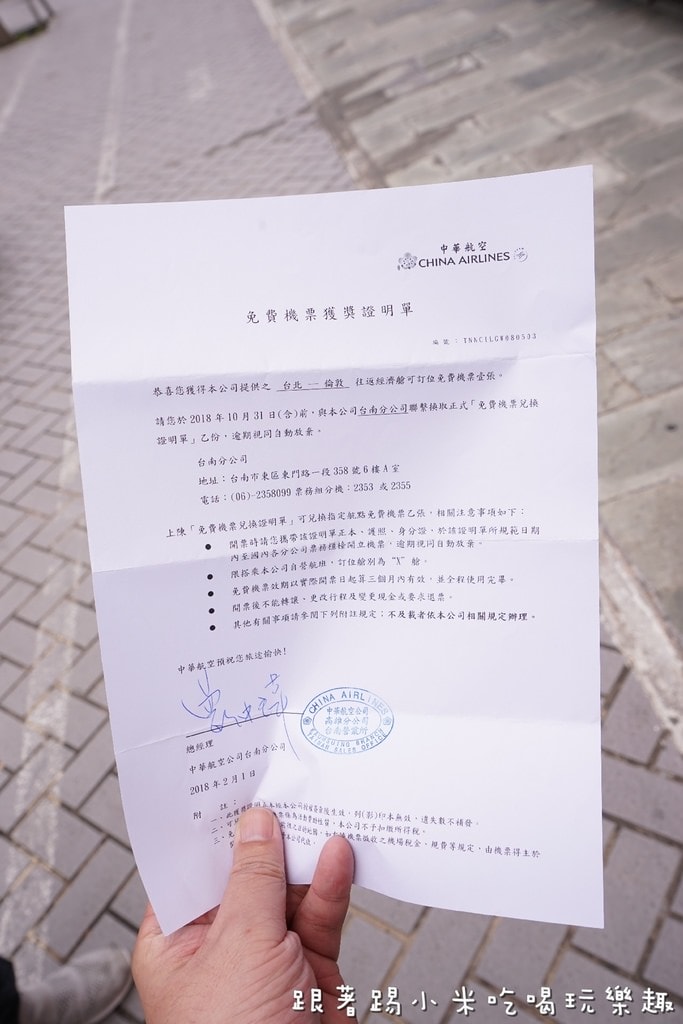 中華航空
CHINA AIRLINES
免費機票獲獎證明單
編號：TNNCILGW080503
恭喜您獲得本公司提供之 台北 － 倫敦 往返經濟艙可訂位免費機票壹張。
請您於 2018 年 10 月 31 日(含)前，與本公司台南分公司聯繫換取正式「免費機票兌換
證明單」乙份，逾期視同自動放棄。
台南分公司
地址：台南市東區東門路一段 358 號 6 樓 A 室
電話：(06)-2358099 票務組分機：2353 或 2355
上陳「免費機票兌換證明單」可兌換指定航點免費機票乙張，相關注意事項如下：
● 開票時請您攜帶該證明單正本、護照、身分證，於該證明單所規範日期
內至國內各分公司票務櫃檯開立機票，逾期視同自動放棄。
● 限搭乘本公司自營航班，訂位艙別為 "X" 艙。
● 免費機票效期以實際開票日起算三個月內有效，並全程使用完畢。
● 開票後不能轉讓、更改行程及變更現金或要求退票。
● 其他有關事項請參閱下列附註規定；不及載者依本公司相關規定辦理。
中華航空預祝您旅途愉快!
總經理
中華航空公司台南分公司
2018 年 2 月 1 日
CHINA AIRLINES
中華航空公司
高雄分公司
台南營業所
KAOHSIUNG BRANCH
TAINAN SALES OFFICE
附 註：
一、此獲獎證明
本公司
後生效，列(影)印本無效，遺失敬不補發。
本公司不予扣繳所得稅。
機票徵收之機場稅金、規費等規定，由機票得主於
本公司代收。
跟著踢小米吃喝玩樂趣